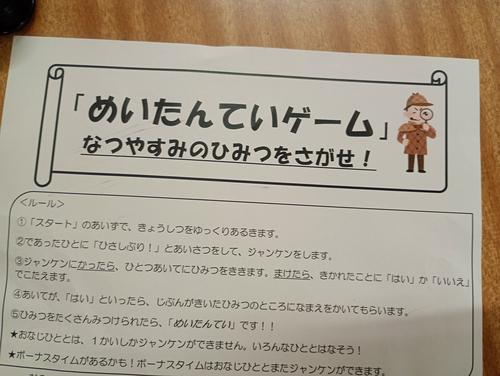 「めいたんていゲーム」
なつやすみのひみつをさがせ！
＜ルール＞
①「スタート」のあいずで、きょうしつをゆっくりあるきます。
②であったひとに「ひさしぶり！」とあいさつをして、ジャンケンをします。
③ジャンケンにかったら、ひとつあいてにひみつをききます。まけたら、きかれたことに「はい」か「いいえ」
でこたえます。
④あいてが、「はい」といったら、じぶんがきいたひみつのところになまえをかいてもらいます。
⑤ひみつをたくさんみつけられたら、「めいたんてい」です！！
★おなじひととは、１かいしかジャンケンができません。いろんなひととはなそう！
★ボーナスタイムがあるかも！ボーナスタイムはおなじひととまたジャンケンができます。